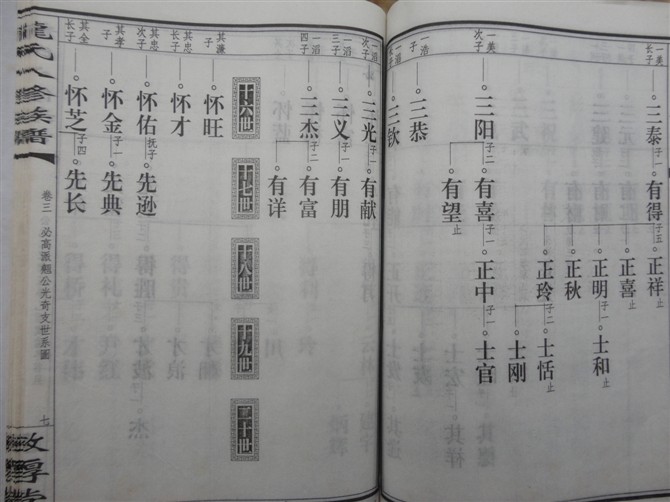 一美长子
三泰
子一
有得
子三
正祥
止
正喜
止
正明
子一
士和
止
正秋
正玲
子二
士恬
止
士刚
一美次子
三阳
子二
有喜
子一
正中
子一
士官
有望
止
一浩子
三恭
三钦
一滔长子
三光
子一
有献
一滔三子
三义
子一
有朋
一滔四子
三杰
子二
有富
有详
十六世
十七世
十八世
十九世
二十世
其谦子
怀旺
其忠长子
怀才
其忠次子
怀佑
抚子
先逊
其孝子
怀金
子一
先典
其全长子
怀芝
子四
先长
氏八修族谱
卷三
必高派
公光奇支世系图
七
敦厚堂